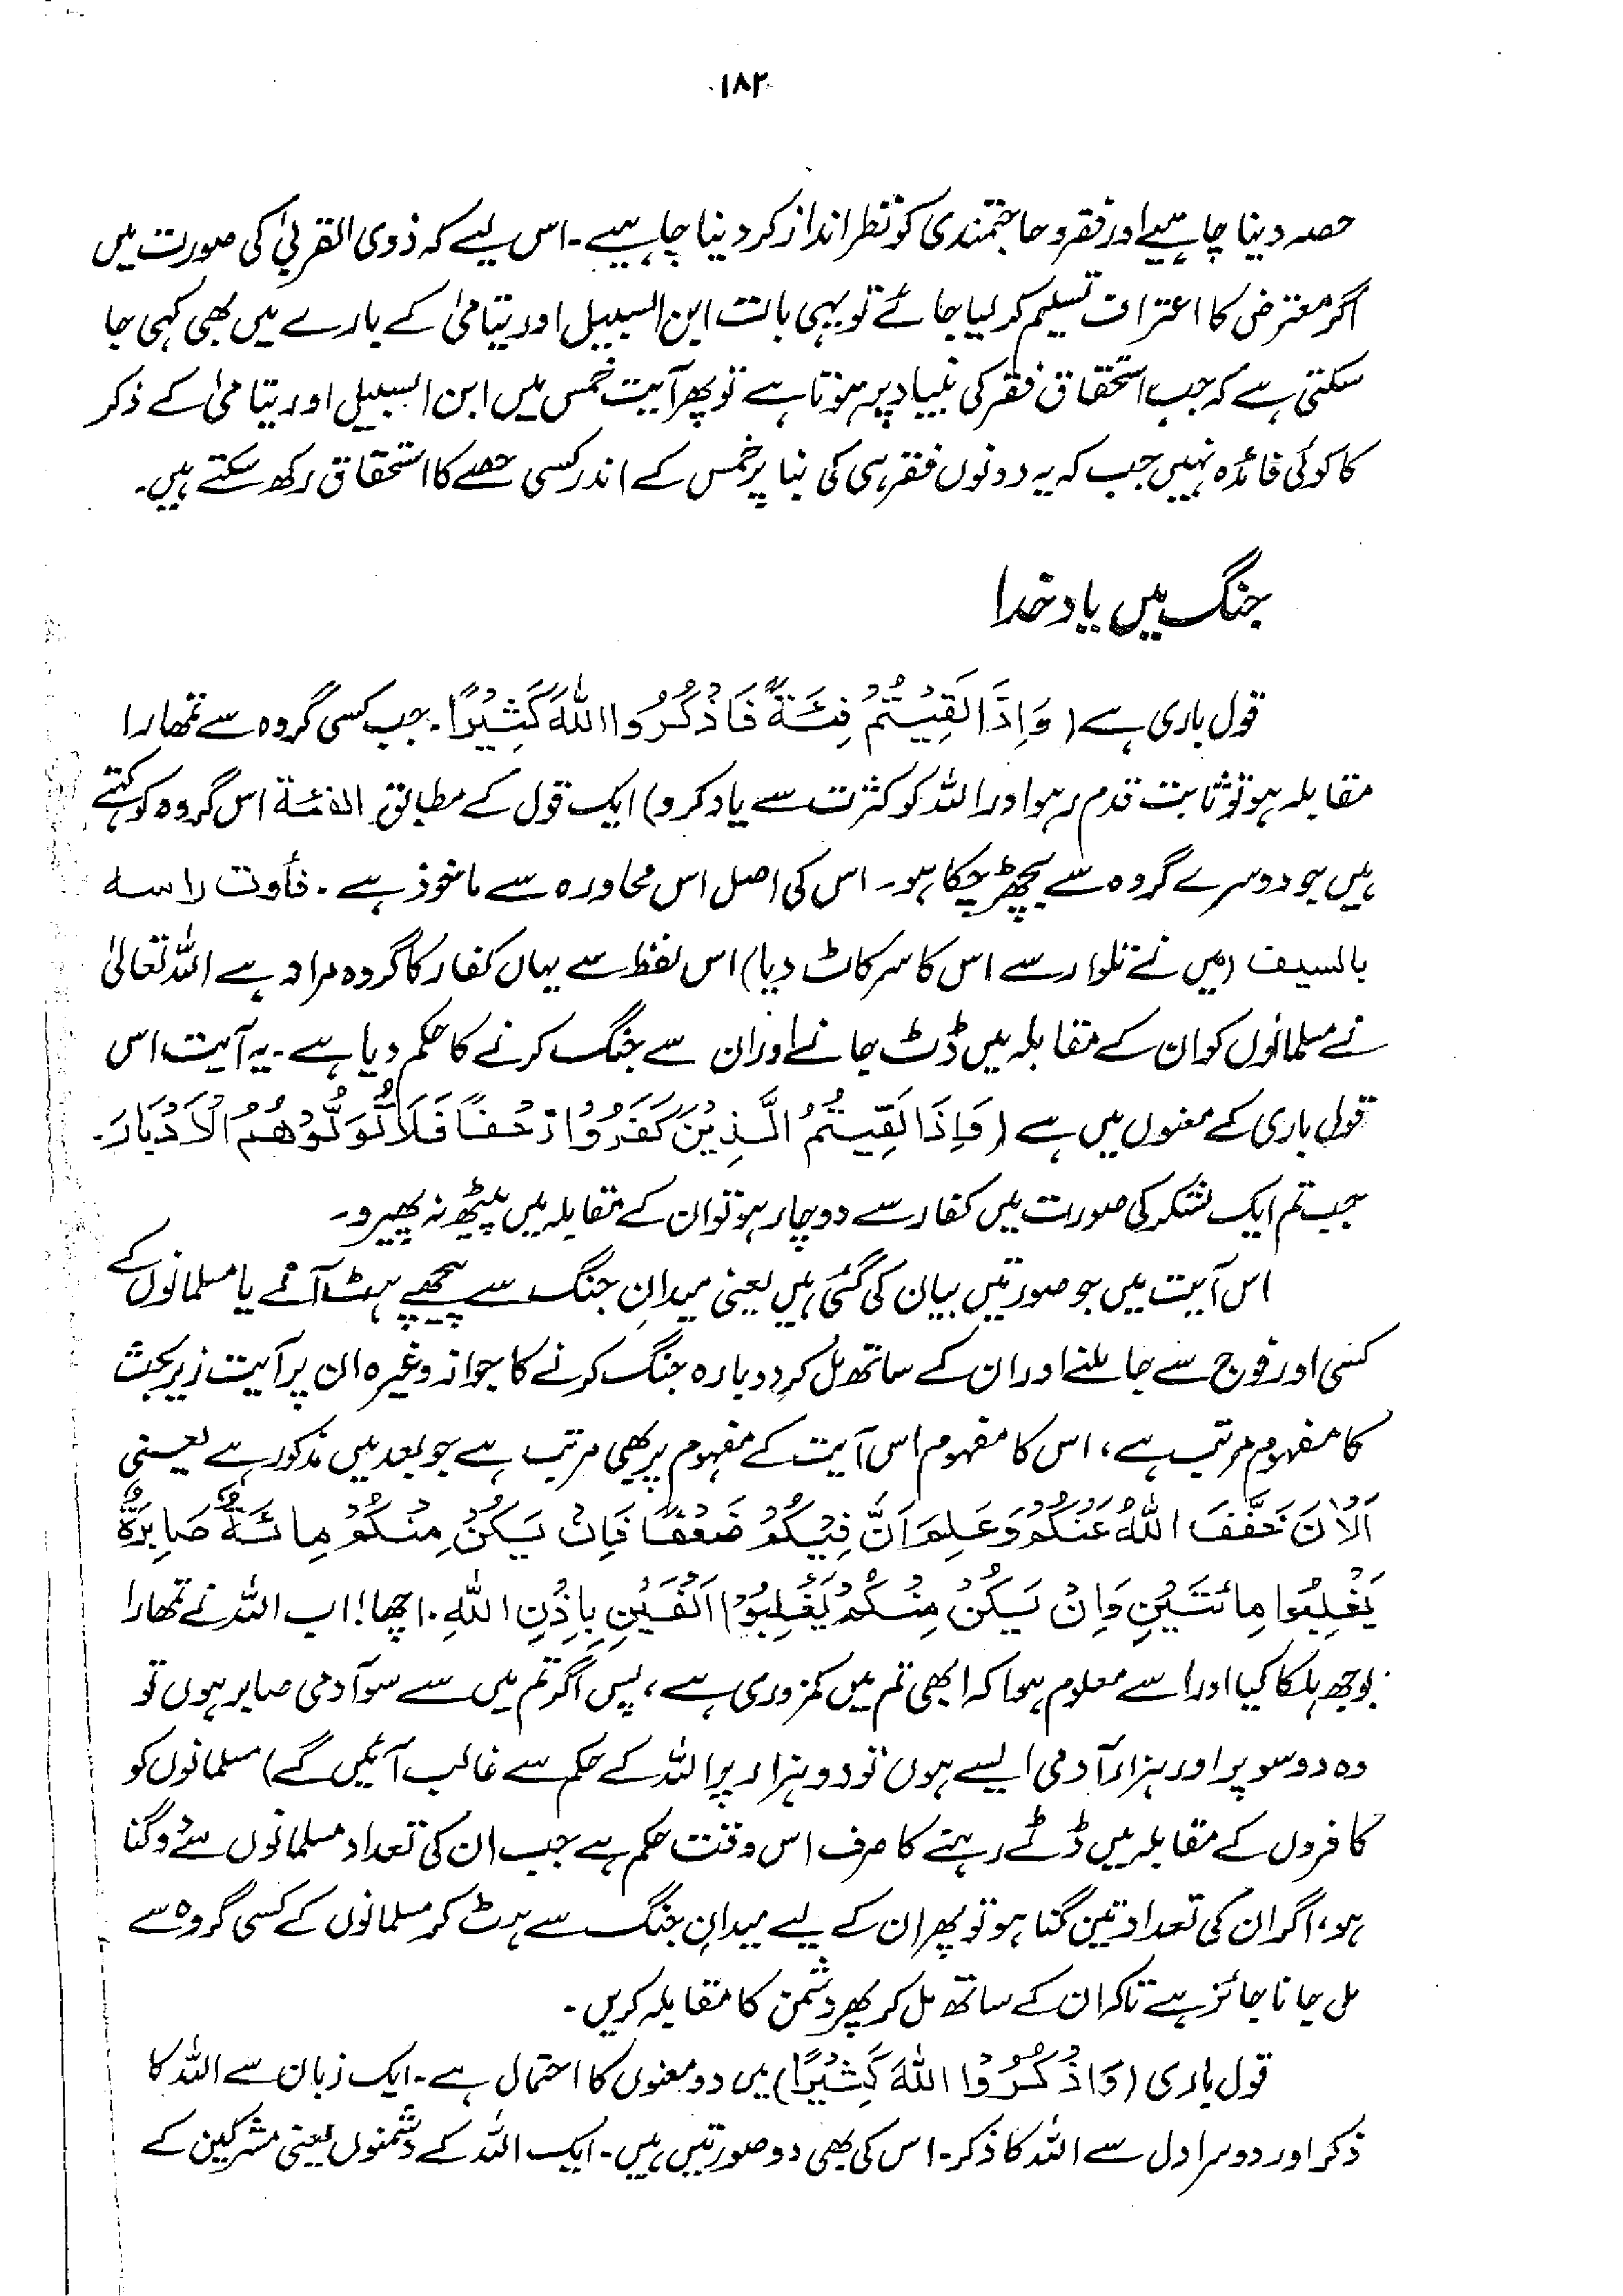 ۱۸۲
حصہ دینا چاہیے اور فقر و حاجتمندی کو نظر انداز کر دینا چاہیے۔ اس لیے کہ ذوی القربیٰ کی صورت میں
اگر معترض کا اعتراف تسلیم کر لیا جائے تو یہی بات ابن السبیل اور یتامیٰ کے بارے میں بھی کہی جا
سکتی ہے کہ جب استحقاق فقر کی بنیاد پر ہوتا ہے تو پھر آیت خمس میں ابن السبیل اور یتامیٰ کے ذکر
کا کوئی فائدہ نہیں جب کہ یہ دونوں فقر ہی کی بنا پر خمس کے اندر کسی حصے کا استحقاق رکھ سکتے ہیں۔
جنگ میں یاد خدا
قول باری ہے (وَاِذَا لَقِيْتُمْ فِئَةً فَاذْكُرُوا اللّٰهَ كَثِيْرًا۔ جب کسی گروہ سے تمھارا
مقابلہ ہو تو ثابت قدم رہو اور اللہ کو کثرت سے یاد کرو) ایک قول کے مطابق الفئة اس گروہ کو کہتے
ہیں جو دوسرے گروہ سے بچھڑ چکا ہو۔ اس کی اصل اس محاورہ سے ماخوذ ہے۔ فأوت راسه
بالسیف (میں نے تلوار سے اس کا سر کاٹ دیا) اس لفظ سے یہاں کفار کا گروہ مراد ہے اللہ تعالیٰ
نے مسلمانوں کو ان کے مقابلہ میں ڈٹ جانے اور ان سے جنگ کرنے کا حکم دیا ہے۔ یہ آیت اس
قول باری کے معنوں میں ہے (فَاِذَا لَقِيْتُمُ الَّذِيْنَ كَفَرُوْا زَحْفًا فَلَا تُوَلُّوْهُمُ الْاَدْبَارَ۔
جب تم ایک لشکر کی صورت میں کفار سے دوچار ہو تو ان کے مقابلہ میں پیٹھ نہ پھیرو۔
اس آیت میں جو صورتیں بیان کی گئی ہیں یعنی میدانِ جنگ سے پیچھے ہٹ آنے یا مسلمانوں کے
کسی اور فوج سے جا ملنے اور ان کے ساتھ مل کر دوبارہ جنگ کرنے کا جواز وغیرہ ان پر آیت زیر بحث
کا مفہوم مرتب ہے، اس کا مفہوم اسی آیت کے مفہوم پر بھی مرتب ہے جو بعد میں مذکور ہے یعنی
اَلْاٰنَ خَفَّفَ اللّٰهُ عَنْكُمْ وَعَلِمَ اَنَّ فِيْكُمْ ضَعْفًا فَاِنْ يَكُنْ مِنْكُمْ مِائَةٌ صَابِرَةٌ
يَغْلِبُوْا مِائَتَيْنِ وَاِنْ يَكُنْ مِنْكُمْ يَغْلِبُوْا اَلْفَيْنِ بِاِذْنِ اللّٰهِ۔ اچھا! اب اللہ نے تمھارا
بوجھ ہلکا کیا اور اسے معلوم ہوا کہ ابھی تم میں کمزوری ہے، پس اگر تم میں سے سو آدمی صابر ہوں تو
وہ دو سو پر اور ہزار آدمی ایسے ہوں تو دو ہزار پر اللہ کے حکم سے غالب آئیں گے) مسلمانوں کو
کافروں کے مقابلہ میں ڈٹے رہنے کا صرف اس وقت حکم ہے جب ان کی تعداد مسلمانوں سے دوگنا
ہو، اگر ان کی تعداد تین گنا ہو تو پھر ان کے لیے میدانِ جنگ سے ہٹ کر مسلمانوں کے کسی گروہ سے
مل جانا جائز ہے تاکہ ان کے ساتھ مل کر پھر دشمن کا مقابلہ کریں۔
قول باری (وَاذْكُرُوا اللّٰهَ كَثِيْرًا) میں دو معنوں کا احتمال ہے۔ ایک زبان سے اللہ کا
ذکر اور دوسرا دل سے اللہ کا ذکر۔ اس کی بھی دو صورتیں ہیں۔ ایک اللہ کے دشمنوں یعنی مشرکین کے